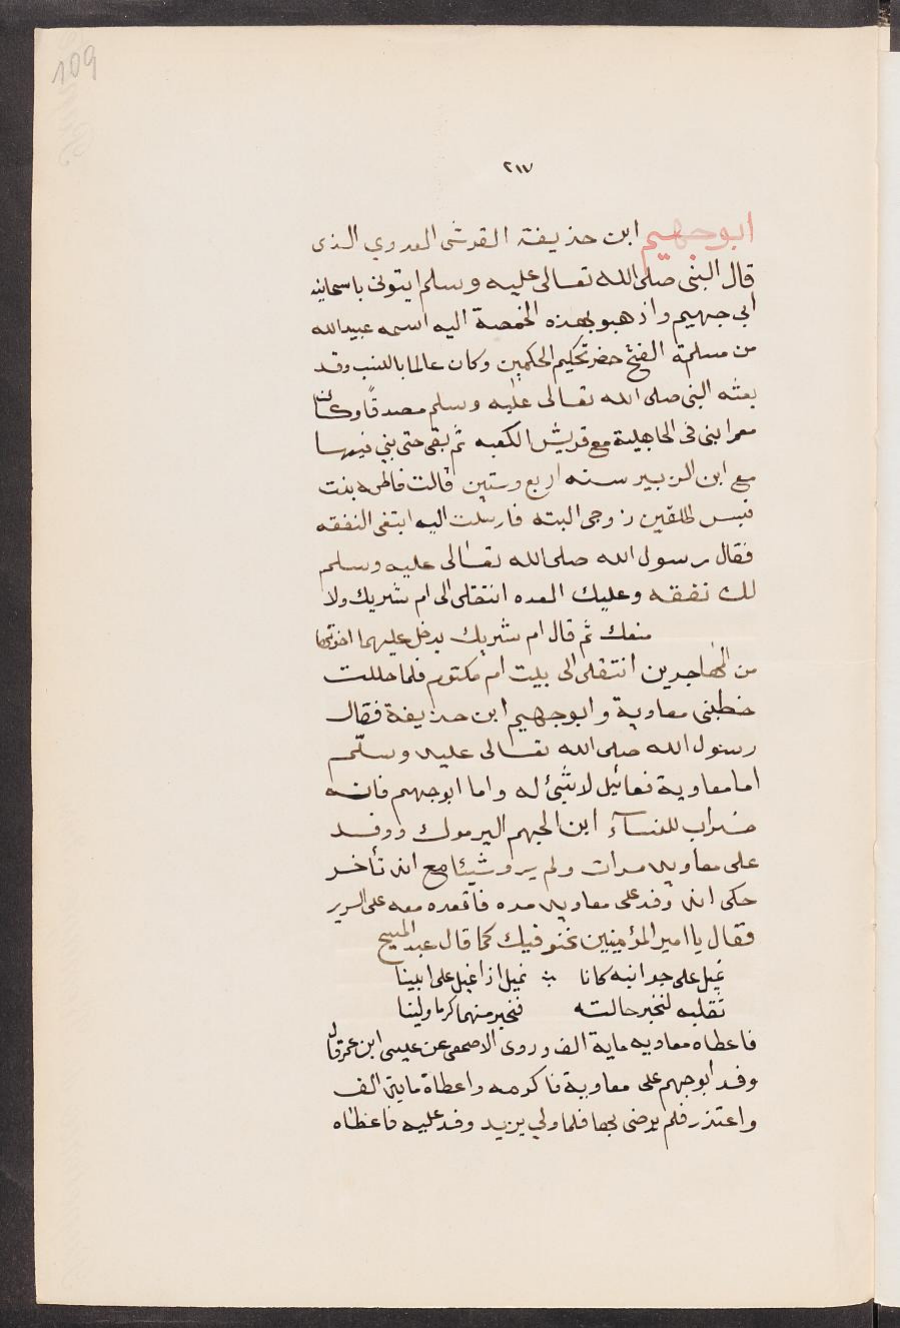 109
٢١٧
ابو جهيم ابن حذيفة القرشى العدوي الذى
قال النبى صلى الله تعالى عليه وسلم ايتونى باسمانيه
ابى جهيم واذهبو بهذه الخمصة اليه اسمه عبيد الله
من مسلمة الفتح حضر تحكيم الحكمين وكان عالما بالنسب وقد
بعثه النبى صلى الله تعالى عليه وسلم مصدقًا وكان
معمرا بنى فى الجاهلية مع قريش الكعبه ثم بقى حتى بني فيها
مع ابن الزبير سنه اربع وستين قالت فاطمه بنت
قيس طلقين زوجى البته فارسلت اليه ابتغى النفقه
فقال رسول الله صلى الله تعالى عليه وسلم
لك نفقه وعليك العده انتقلى الى ام شريك ولا
منعك ثم قال ام شريك يدخل عليهما اخوتها
من المهاجرين انتقلى الى بيت ام مكتوم فلما حللت
خطبنى معاوية وابو جهيم ابن حذيفة فقال
رسول الله صلى الله تعالى عليه وسلّم
اما معاوية فعائيل لا شئ له واما ابو جهم فانه
ضراب للنسآء ابن الجهم اليرموك ووفد
على معاويه مرات ولم يرو شيئا مع انه تأخر
حكى انه وفد على معاويه مره فاقعده معه على السرير
فقال يا امير المؤمينين نحنو فيك كما قال عبد المسيح
نميل على جوانبه كانا ⁘ نميل اذا نميل على ابينا
نقلبه لنخبر حالته فنخبر منهما كرما ولينا
فاعطاه معاويه ماية الف وروى الاصمعى عن عيسى ابن عمر قال
وفد ابو جهم على معاوية فاكرمه واعطاه مايتى الف
واعتذر فلم يرضى بها فلما ولي يزيد وفد عليه فاعطاه